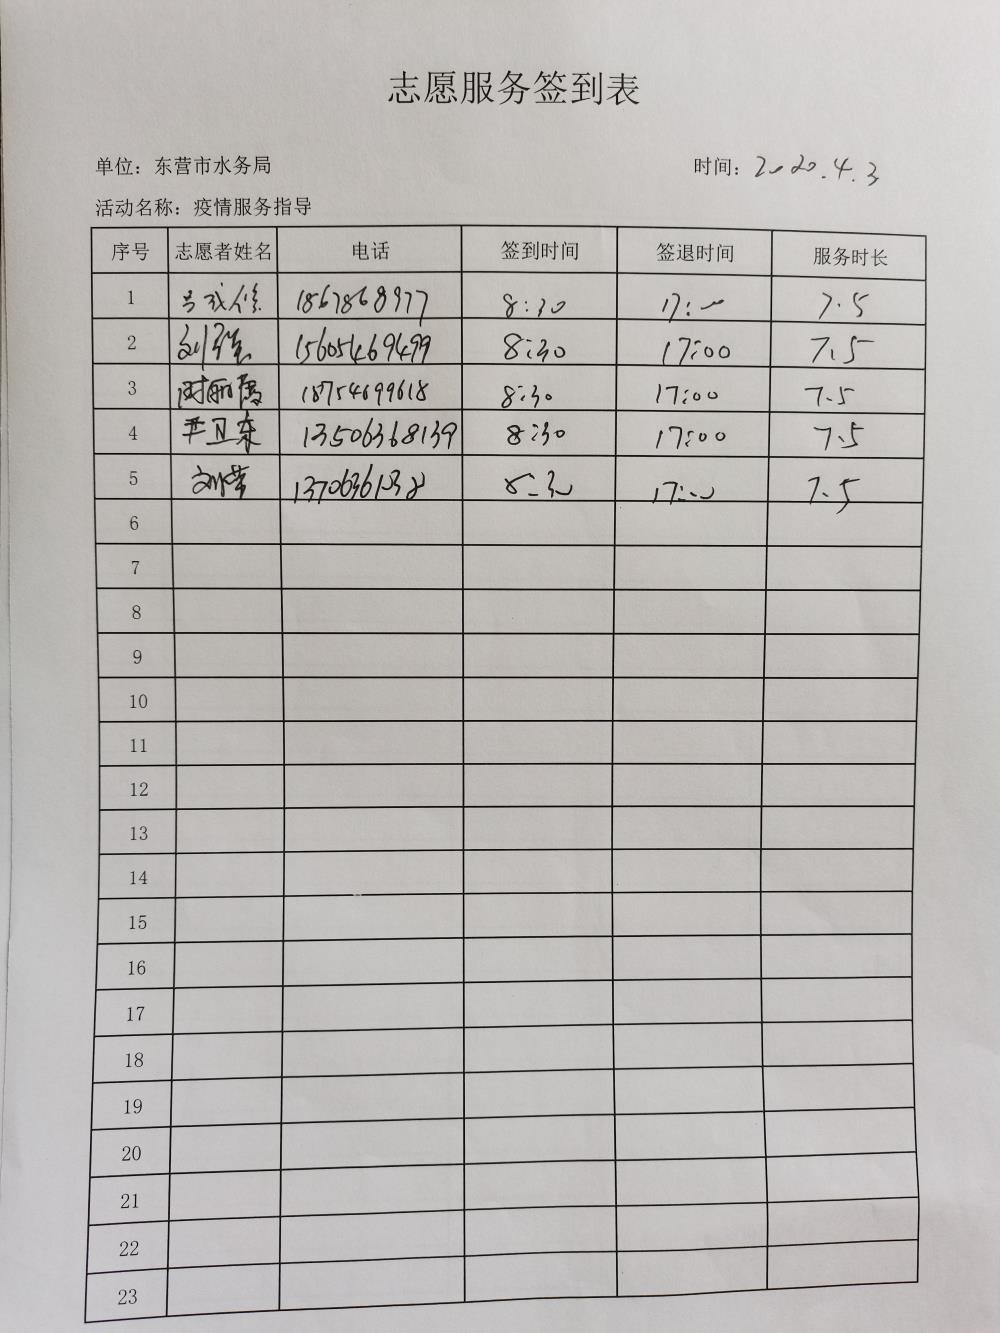 志愿服务签到表
单位：东营市水务局 时间：2020.4.3
活动名称：疫情服务指导
序号 志愿者姓名 电话 签到时间 签退时间 服务时长
1 1867868977 8:30 17:00 7.5
2 刘强 15605469499 8:30 17:00 7.5
3 时丽霞 18754699618 8:30 17:00 7.5
4 尹卫东 13506368139 8:30 17:00 7.5
5 刘荣 8:30 17:00 7.5
6
7
8
9
10
11
12
13
14
15
16
17
18
19
20
21
22
23